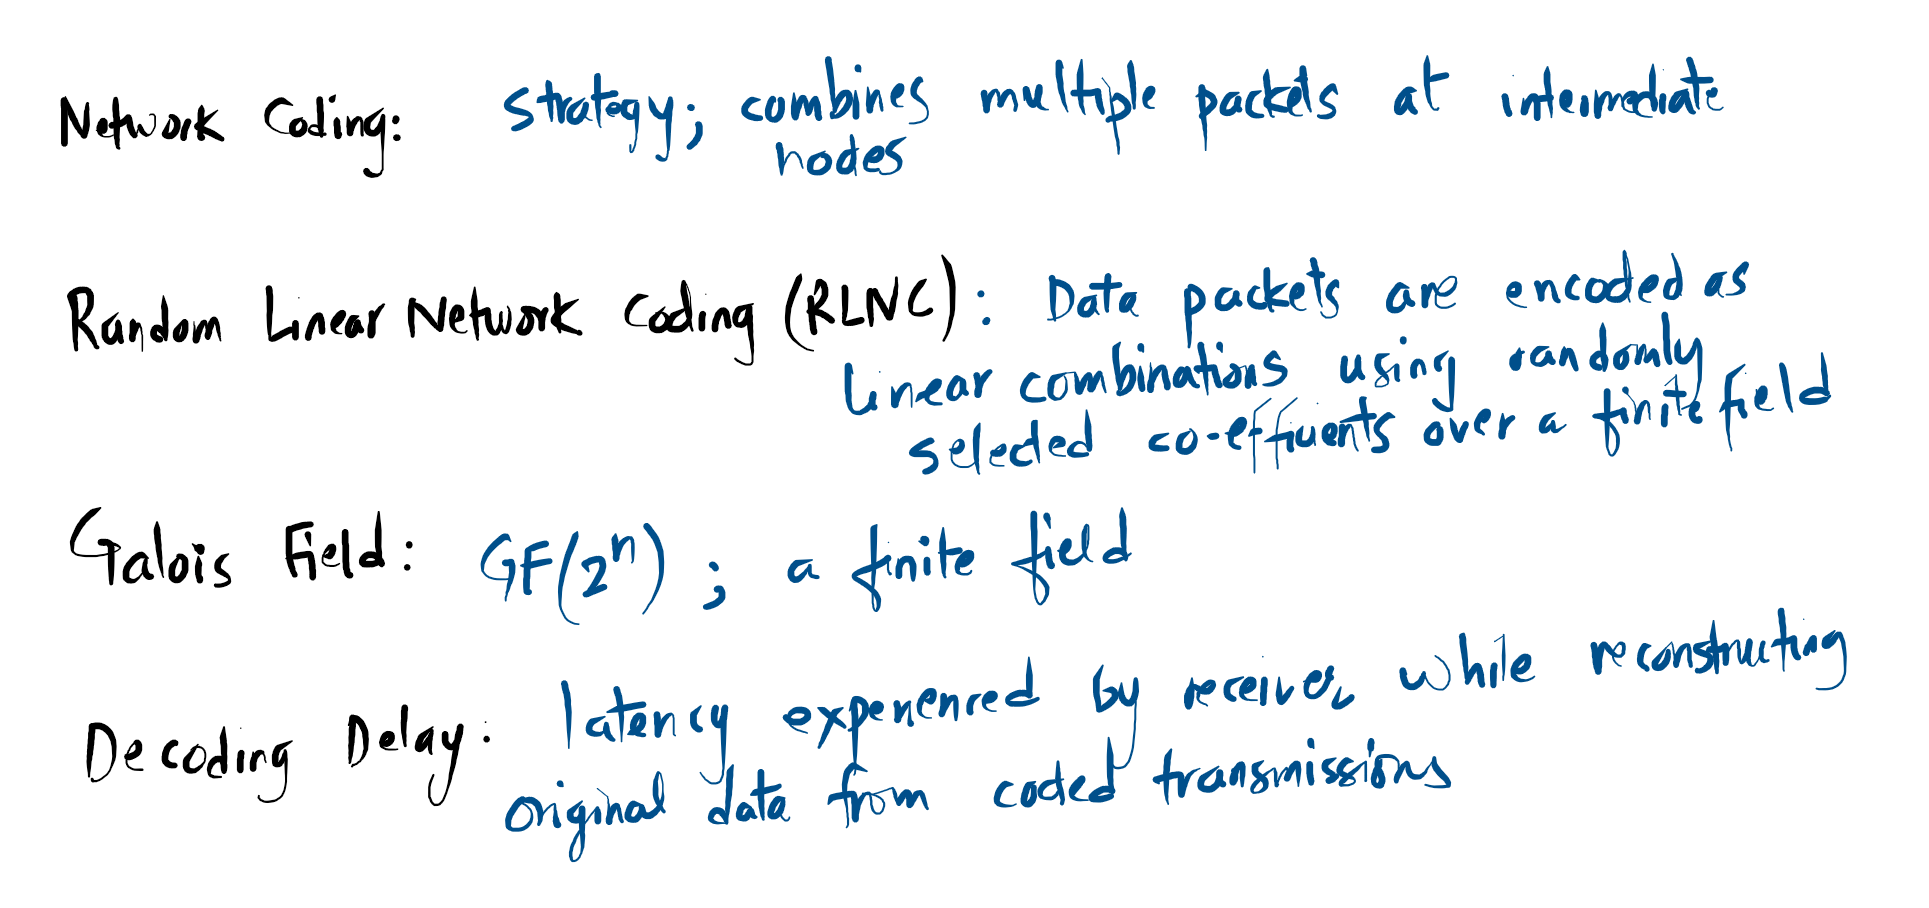 Network Coding: strategy; combines multiple packets at intermediate
nodes
Random Linear Network Coding (RLNC): Data packets are encoded as
linear combinations using randomly
selected co-efficients over a finite field
Galois Field: GF(2^n) ; a finite field
Decoding Delay: latency experienced by receiver while reconstructing
original data from coded transmissions